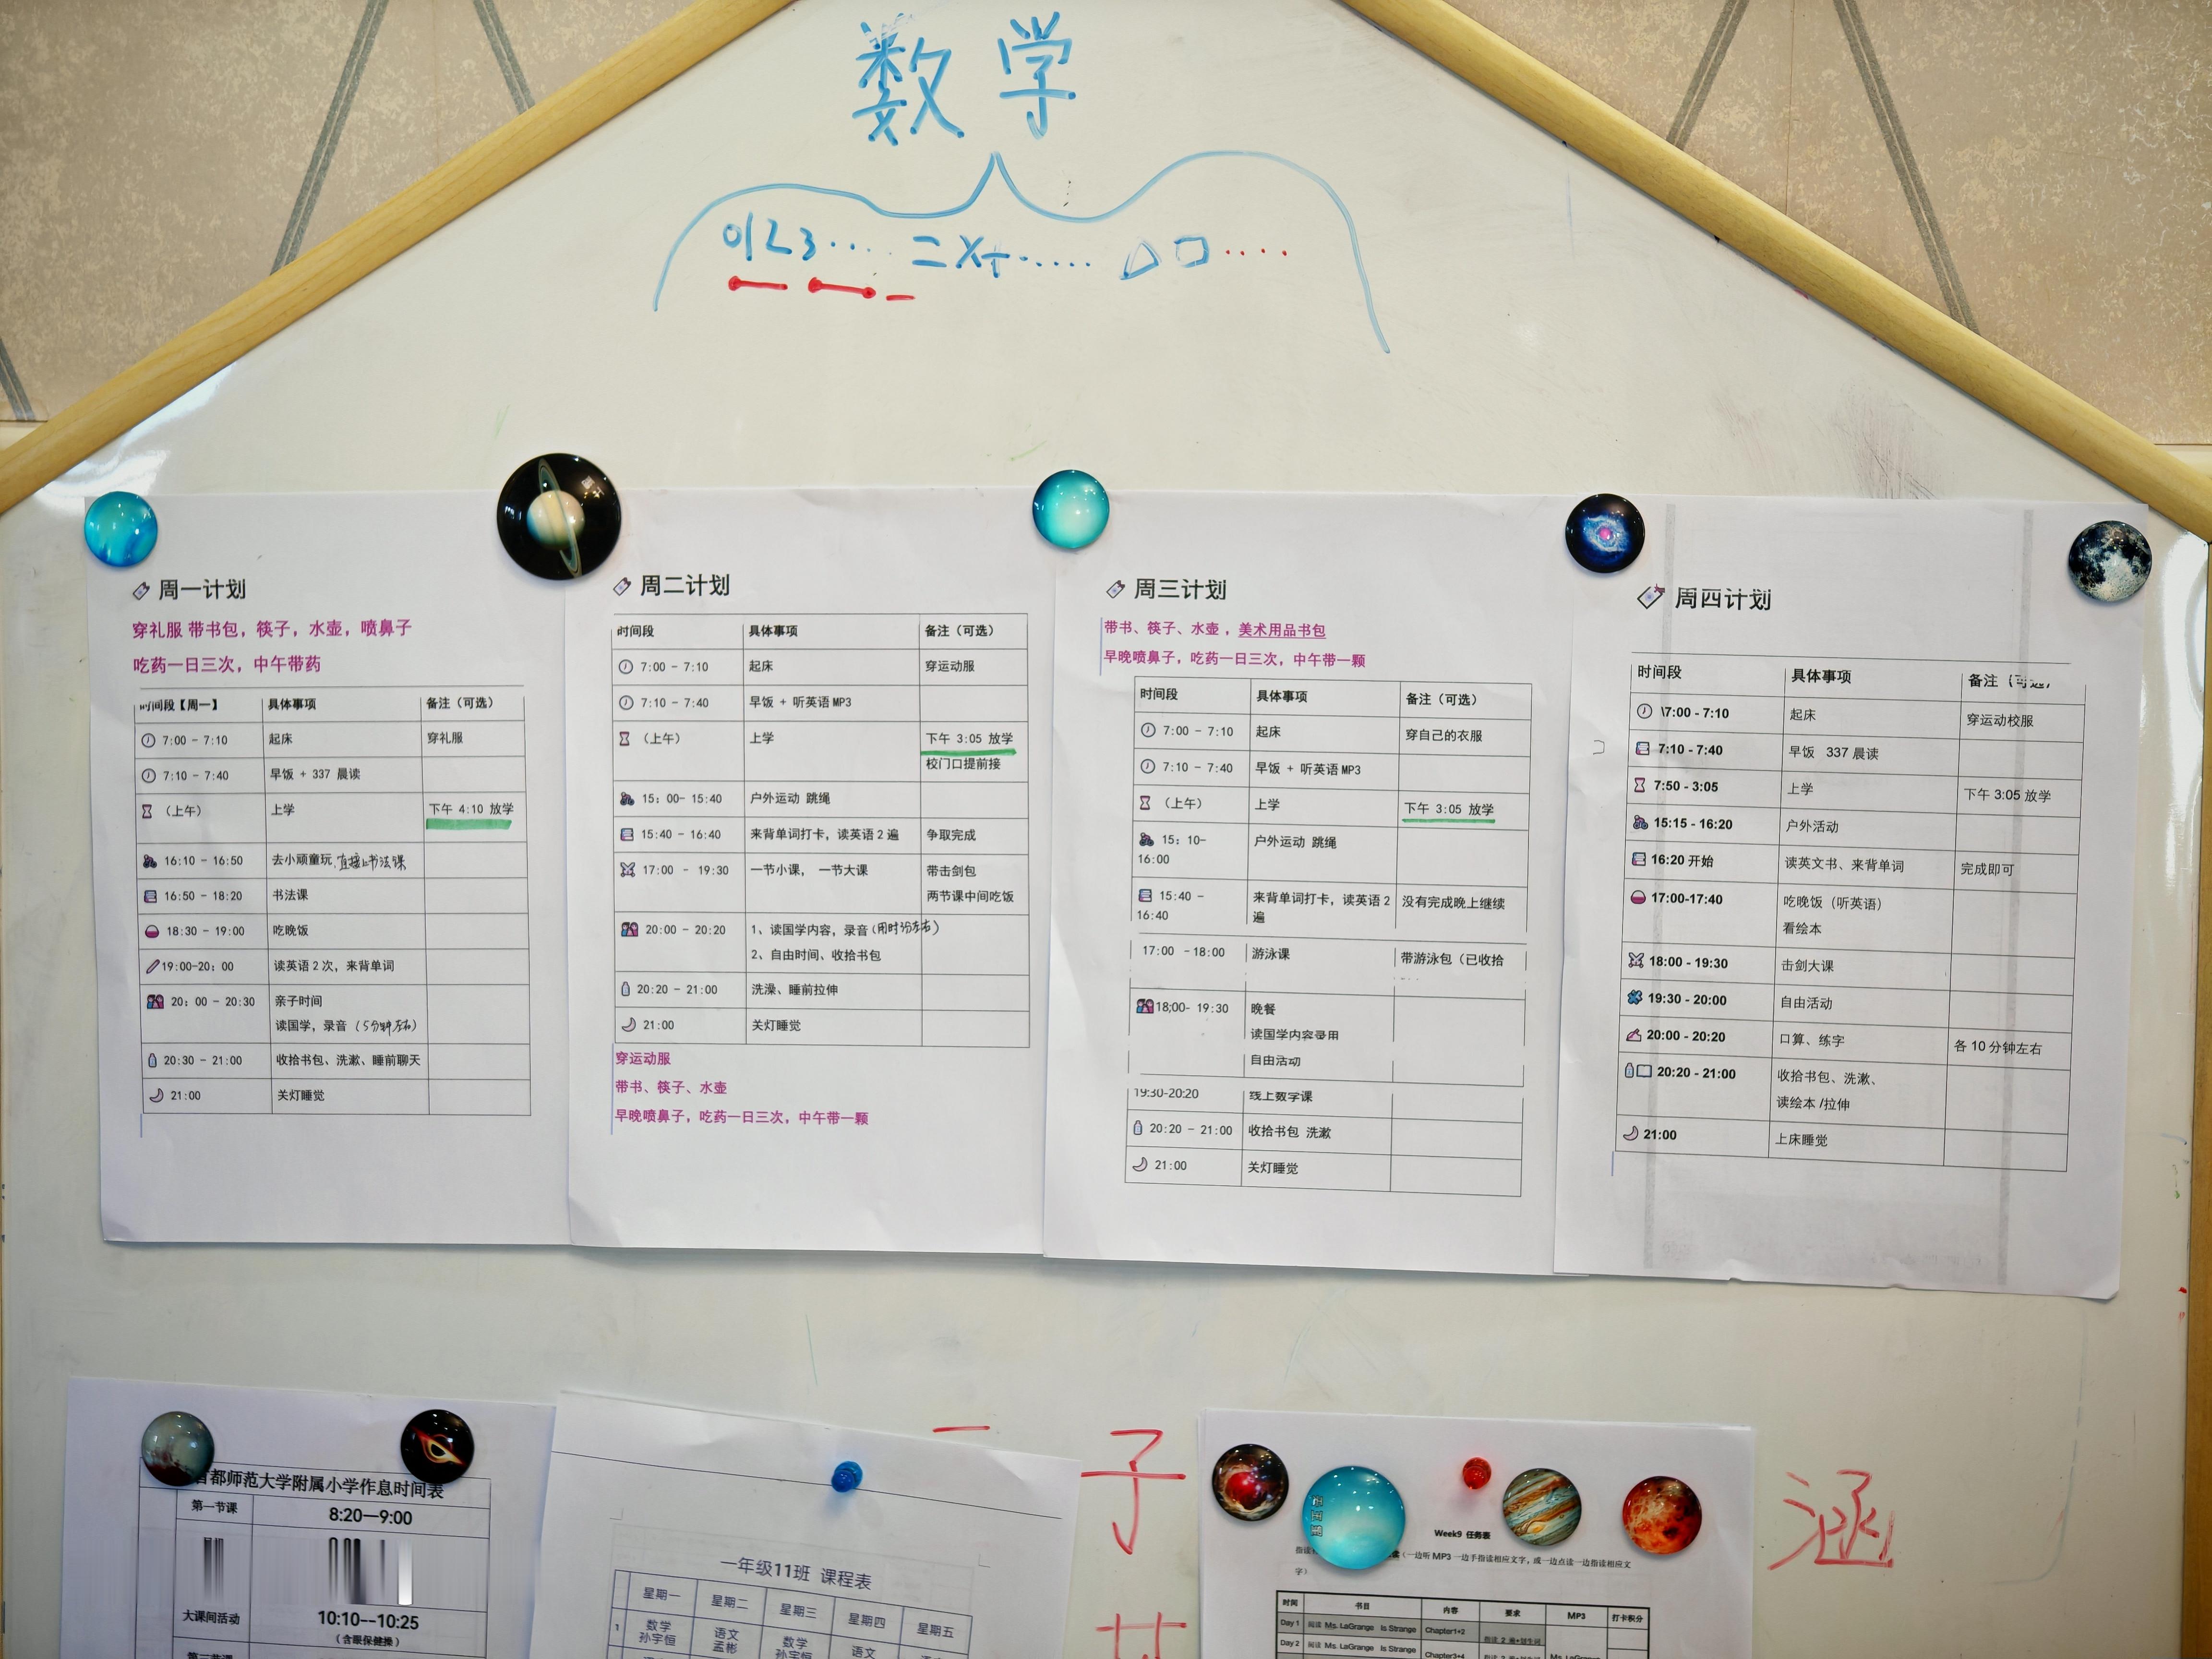 数学
0123···· =×+······ △□····
周一计划
穿礼服 带书包，筷子，水壶，喷鼻子
吃药一日三次，中午带药
时间段【周一】 具体事项 备注（可选）
7:00 - 7:10 起床 穿礼服
7:10 - 7:40 早饭 + 337 晨读
（上午） 上学 下午 4:10 放学
16:10 - 16:50 去小顽童玩，直接上书法课
16:50 - 18:20 书法课
18:30 - 19:00 吃晚饭
19:00-20：00 读英语2次，来背单词
20：00 - 20:30 亲子时间
读国学，录音（5分钟左右）
20:30 - 21:00 收拾书包、洗漱、睡前聊天
21:00 关灯睡觉
周二计划
时间段 具体事项 备注（可选）
7:00 - 7:10 起床 穿运动服
7:10 - 7:40 早饭 + 听英语MP3
（上午） 上学 下午 3:05 放学
校门口提前接
15：00- 15:40 户外运动 跳绳
15:40 - 16:40 来背单词打卡，读英语2遍 争取完成
17:00 - 19:30 一节小课，一节大课 带击剑包
两节课中间吃饭
20:00 - 20:20 1、读国学内容，录音（用时5分左右）
2、自由时间、收拾书包
20:20 - 21:00 洗澡、睡前拉伸
21:00 关灯睡觉
穿运动服
带书、筷子、水壶
早晚喷鼻子，吃药一日三次，中午带一颗
周三计划
带书、筷子、水壶，美术用品书包
早晚喷鼻子，吃药一日三次，中午带一颗
时间段 具体事项 备注（可选）
7:00 - 7:10 起床 穿自己的衣服
7:10 - 7:40 早饭 + 听英语MP3
（上午） 上学 下午 3:05 放学
15：10- 户外运动 跳绳
16:00
15:40 - 来背单词打卡，读英语2 没有完成晚上继续
16:40 遍
17:00 -18:00 游泳课 带游泳包（已收拾
18;00- 19:30 晚餐
读国学内容录用
自由活动
19:30-20:20 线上数学课
20:20 - 21:00 收拾书包 洗漱
21:00 关灯睡觉
周四计划
时间段 具体事项 备注（可选）
\7:00 - 7:10 起床 穿运动校服
7:10 - 7:40 早饭 337 晨读
7:50 - 3:05 上学 下午 3:05 放学
15:15 - 16:20 户外活动
16:20 开始 读英文书、来背单词 完成即可
17:00-17:40 吃晚饭（听英语）
看绘本
18:00 - 19:30 击剑大课
19:30 - 20:00 自由活动
20:00 - 20:20 口算、练字 各 10 分钟左右
20:20 - 21:00 收拾书包、洗漱、
读绘本 /拉伸
21:00 上床睡觉
都师范大学附属小学作息时间表
第一节课 8:20—9:00
大课间活动 10:10--10:25
（含眼保健操）
一年级11班 课程表
星期一 星期二 星期三 星期四 星期五
1 数学 语文 数学 语文
孙宇恒 孟彬 孙宇恒
子
涵
Week9 任务表
（一边听 MP3 一边手指读相应文字，或一边点读一边指读相应文
字）
时间 书目 内容 要求 MP3 打卡积分
Day 1 阅读 Ms. LaGrange Is Strange Chapter1+2
Day 2 阅读 Ms. LaGrange Is Strange Chapter3+4